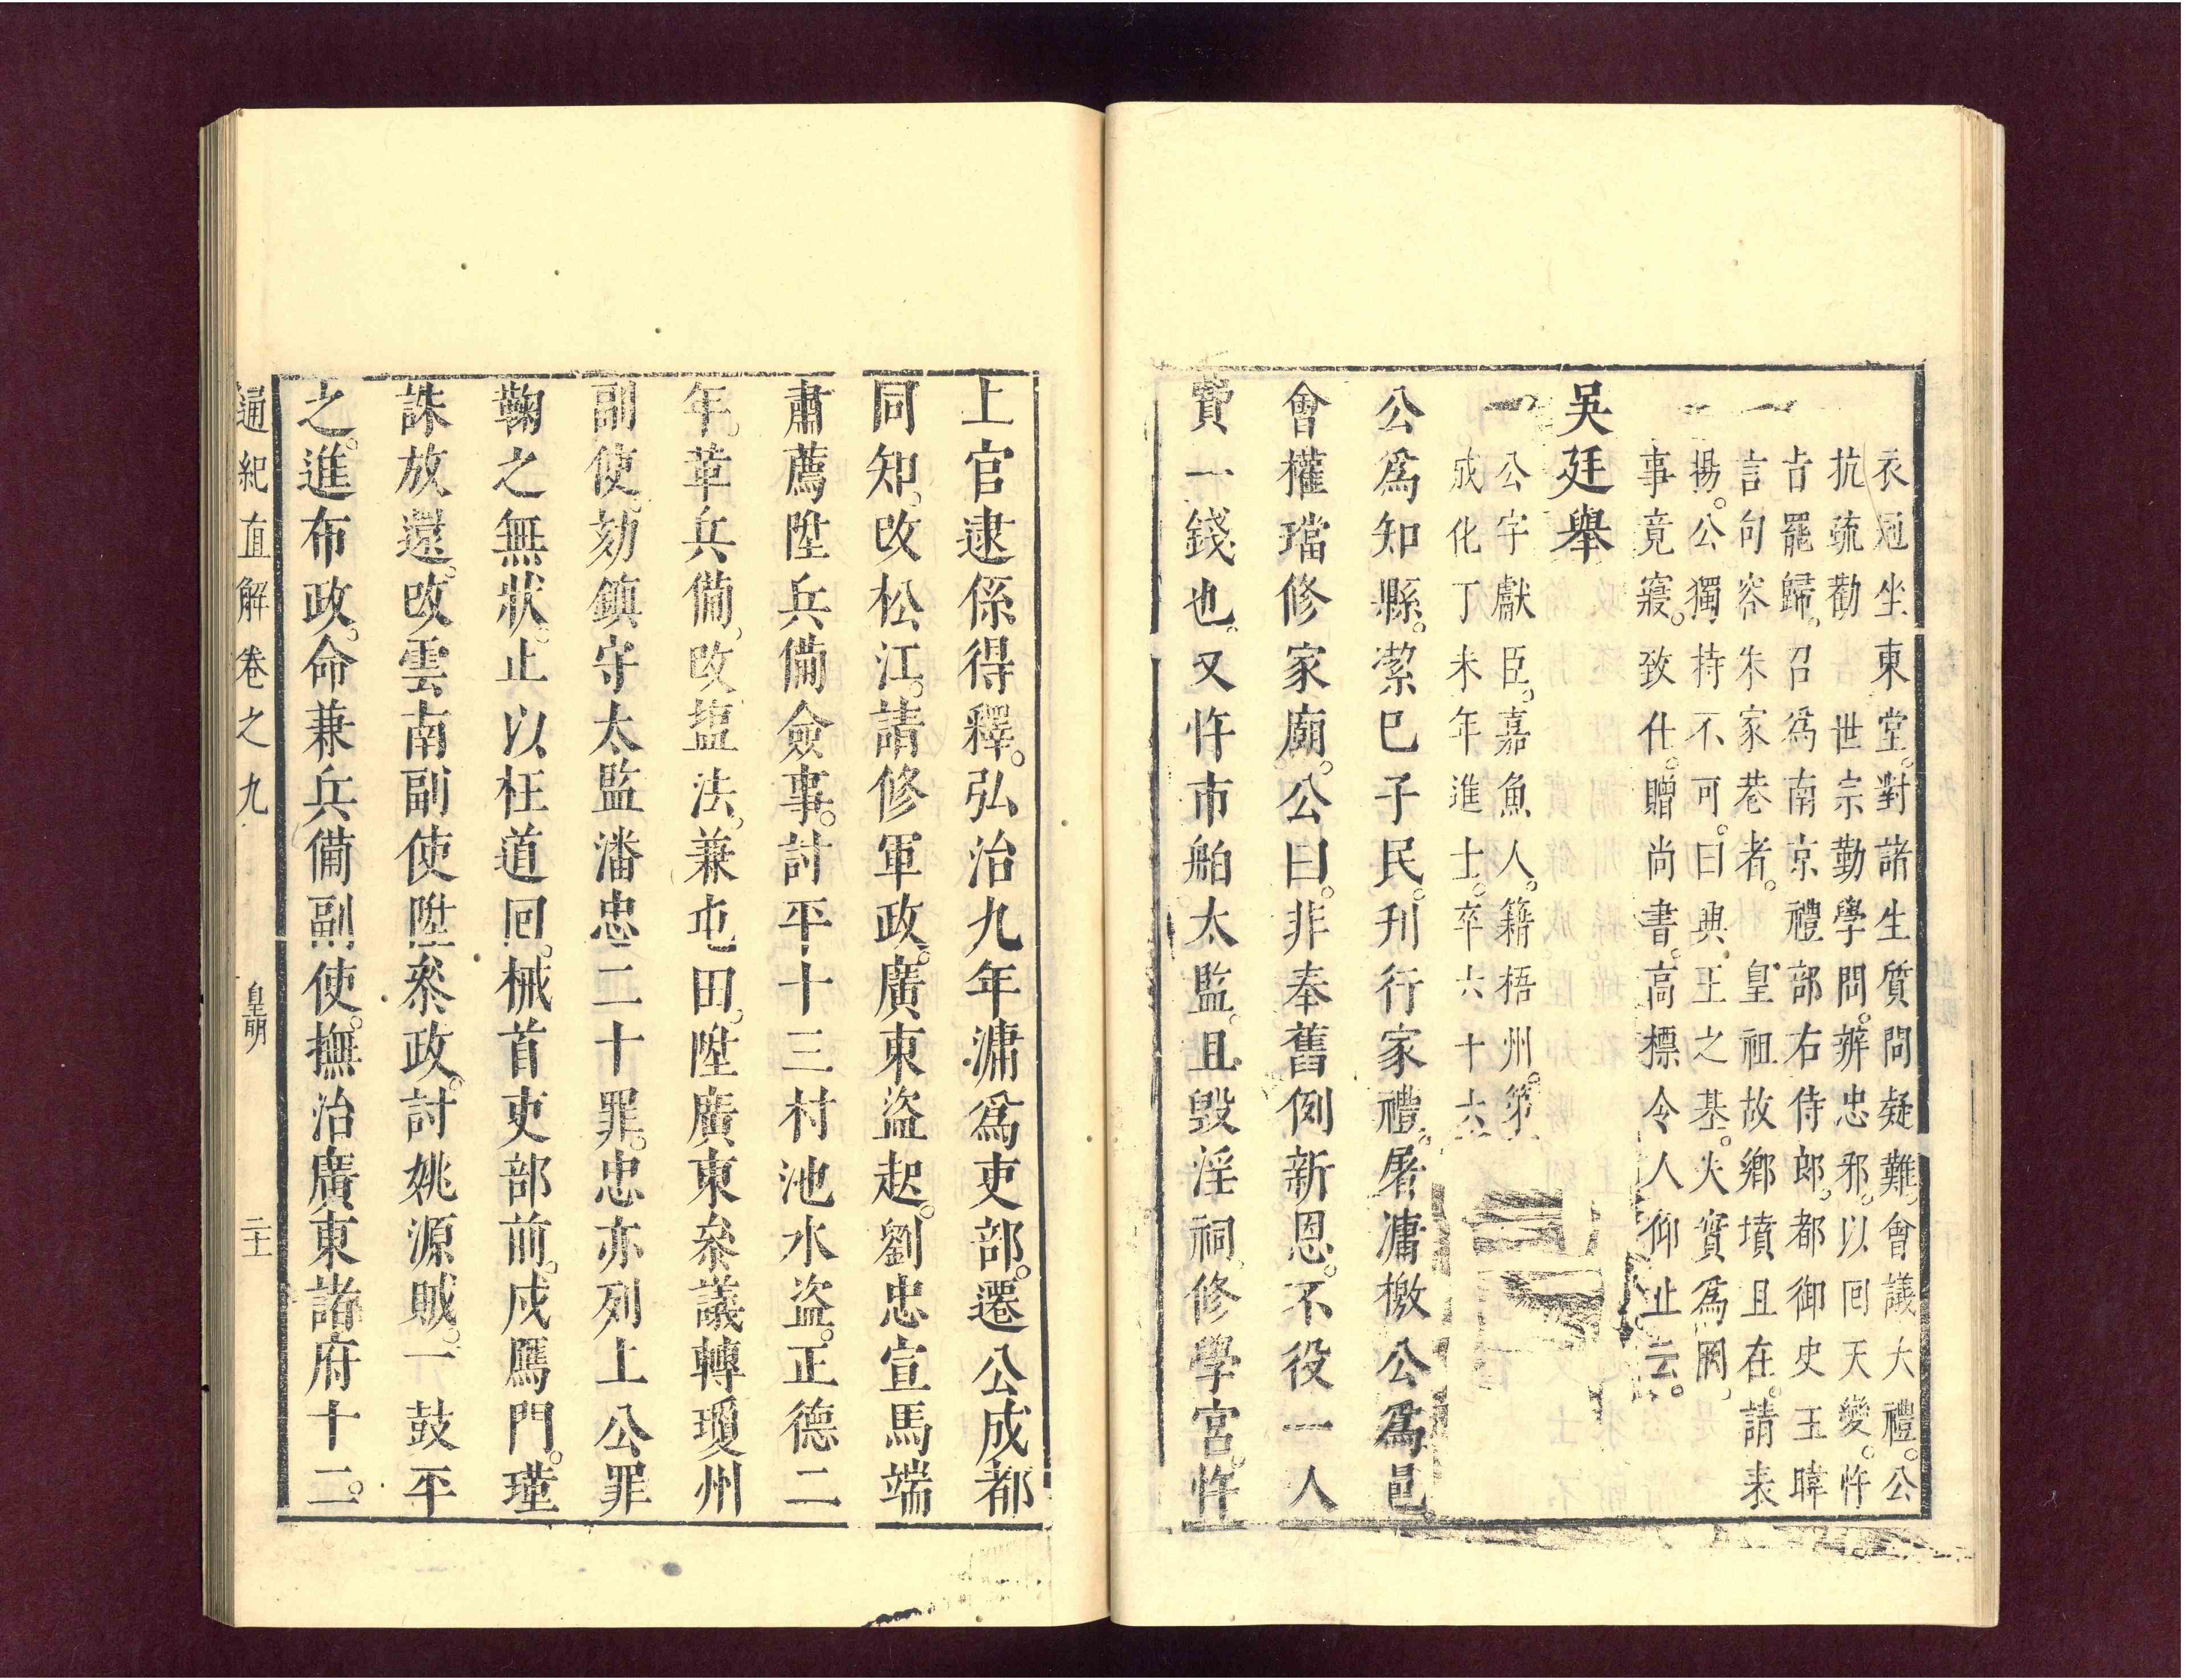 衣冠坐東堂。對諸生質問疑難。會議大禮。公
抗疏勸　世宗勤學問。辨忠邪。以回天變。忤
吉罷歸。召爲南京禮部右侍郎。都御史王暐
言句容朱家巷者。　皇祖故鄉墳且在。請表
揚。公獨持不可。曰典王之基。火實爲
事竟寢。致仕。贈尚書。高標令人仰止云。
吳廷舉
公字獻臣。嘉魚人。籍梧州。第
成化丁未年進士。卒六十六
公爲知縣。潔已子民。刋行家禮。屠滽檄公爲邑
會權璫修家廟。公曰。非奉舊例新恩。不役一人
費一錢也。又忤市舶太監。且毀淫祠。修學宮。忤
上官逮係得釋。弘治九年滽爲吏部。遷公成都
同知。改松江。請修軍政。廣東盜起。劉忠宣馬端
肅薦陞兵備僉事。討平十三村池水盜。正德二
年。革兵備。改塩法。兼屯田。陞廣東叅議轉瓊州
副使。劾鎮守太監潘忠二十罪。忠亦列上公罪
鞠之無狀。止以枉道回。械首吏部前。戍鴈門。瑾
誅放還。改雲南副使陞叅政。討姚源賊。一鼓平
之。進布政。命兼兵備副使。撫治廣東諸府十二。
通紀直解卷之九　皇明　二十